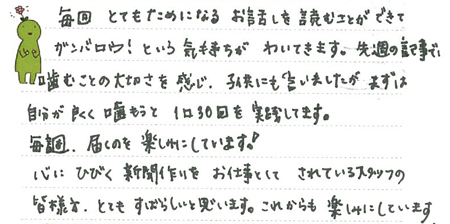 毎回 とてもためになる お話しを 読むことができて
ガンバロウ！という 気持ちが わいてきます。先週の記事で
噛むことの大切さを 感じ、子供にも 言いましたが まずは
自分が 良く 噛もうと 1口30回を 実践してます。
毎週、届くのを 楽しみにしています!
心に ひびく 新聞作りを お仕事として されているスタッフの
皆様方、とても すばらしいと思います。これからも 楽しみにしています